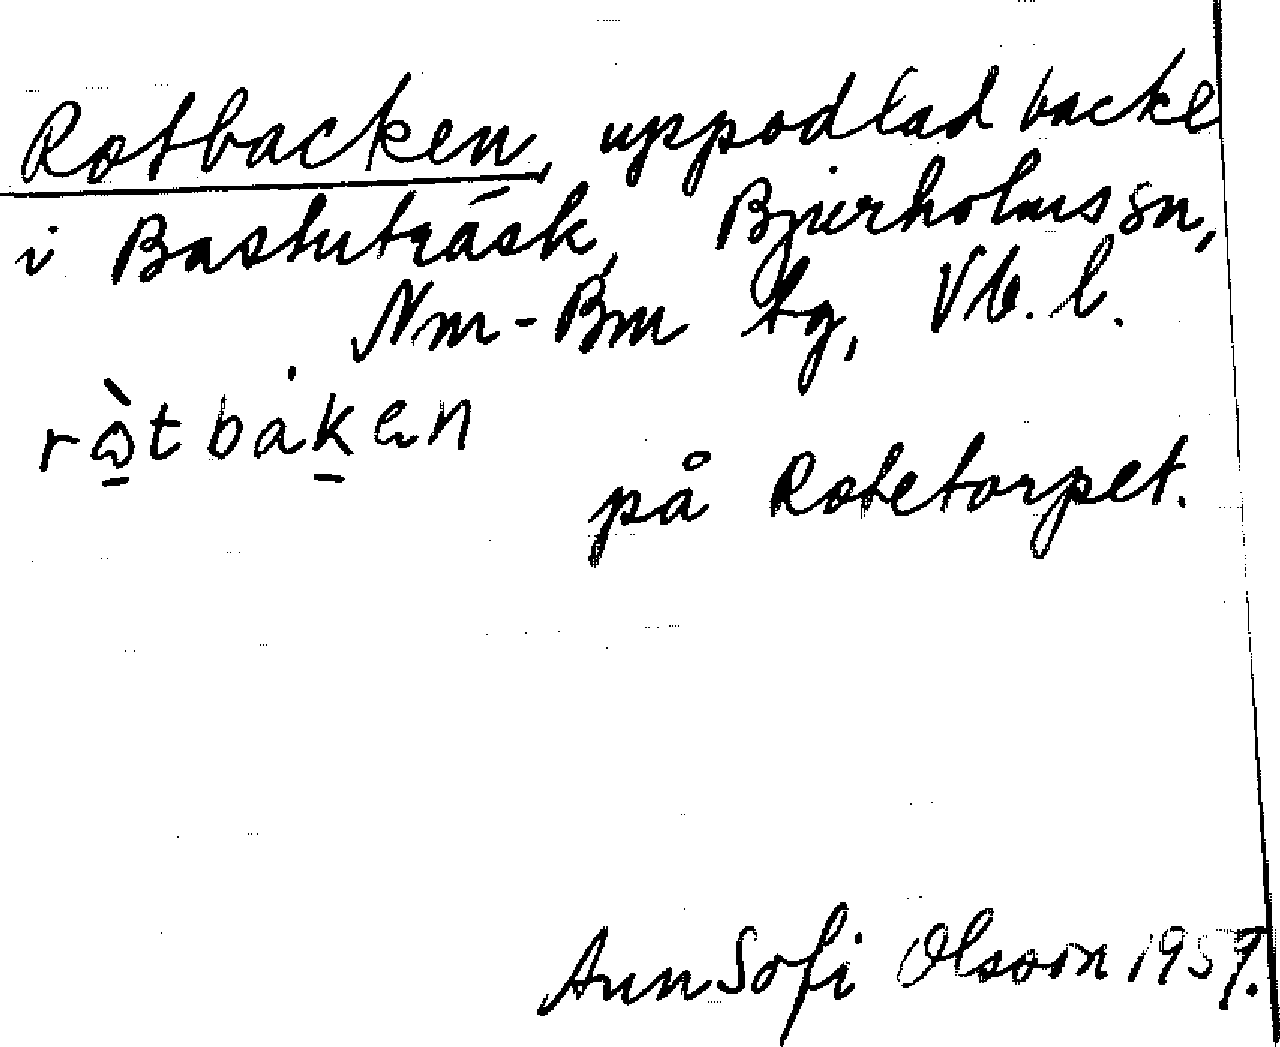 Rotbacken, uppodlad backe
i Bastuträsk, Bjurholms sn,
Nm-Bm tg, Vb. l.
på Rotetorpet.
Ann Sofi Olsson 1957.